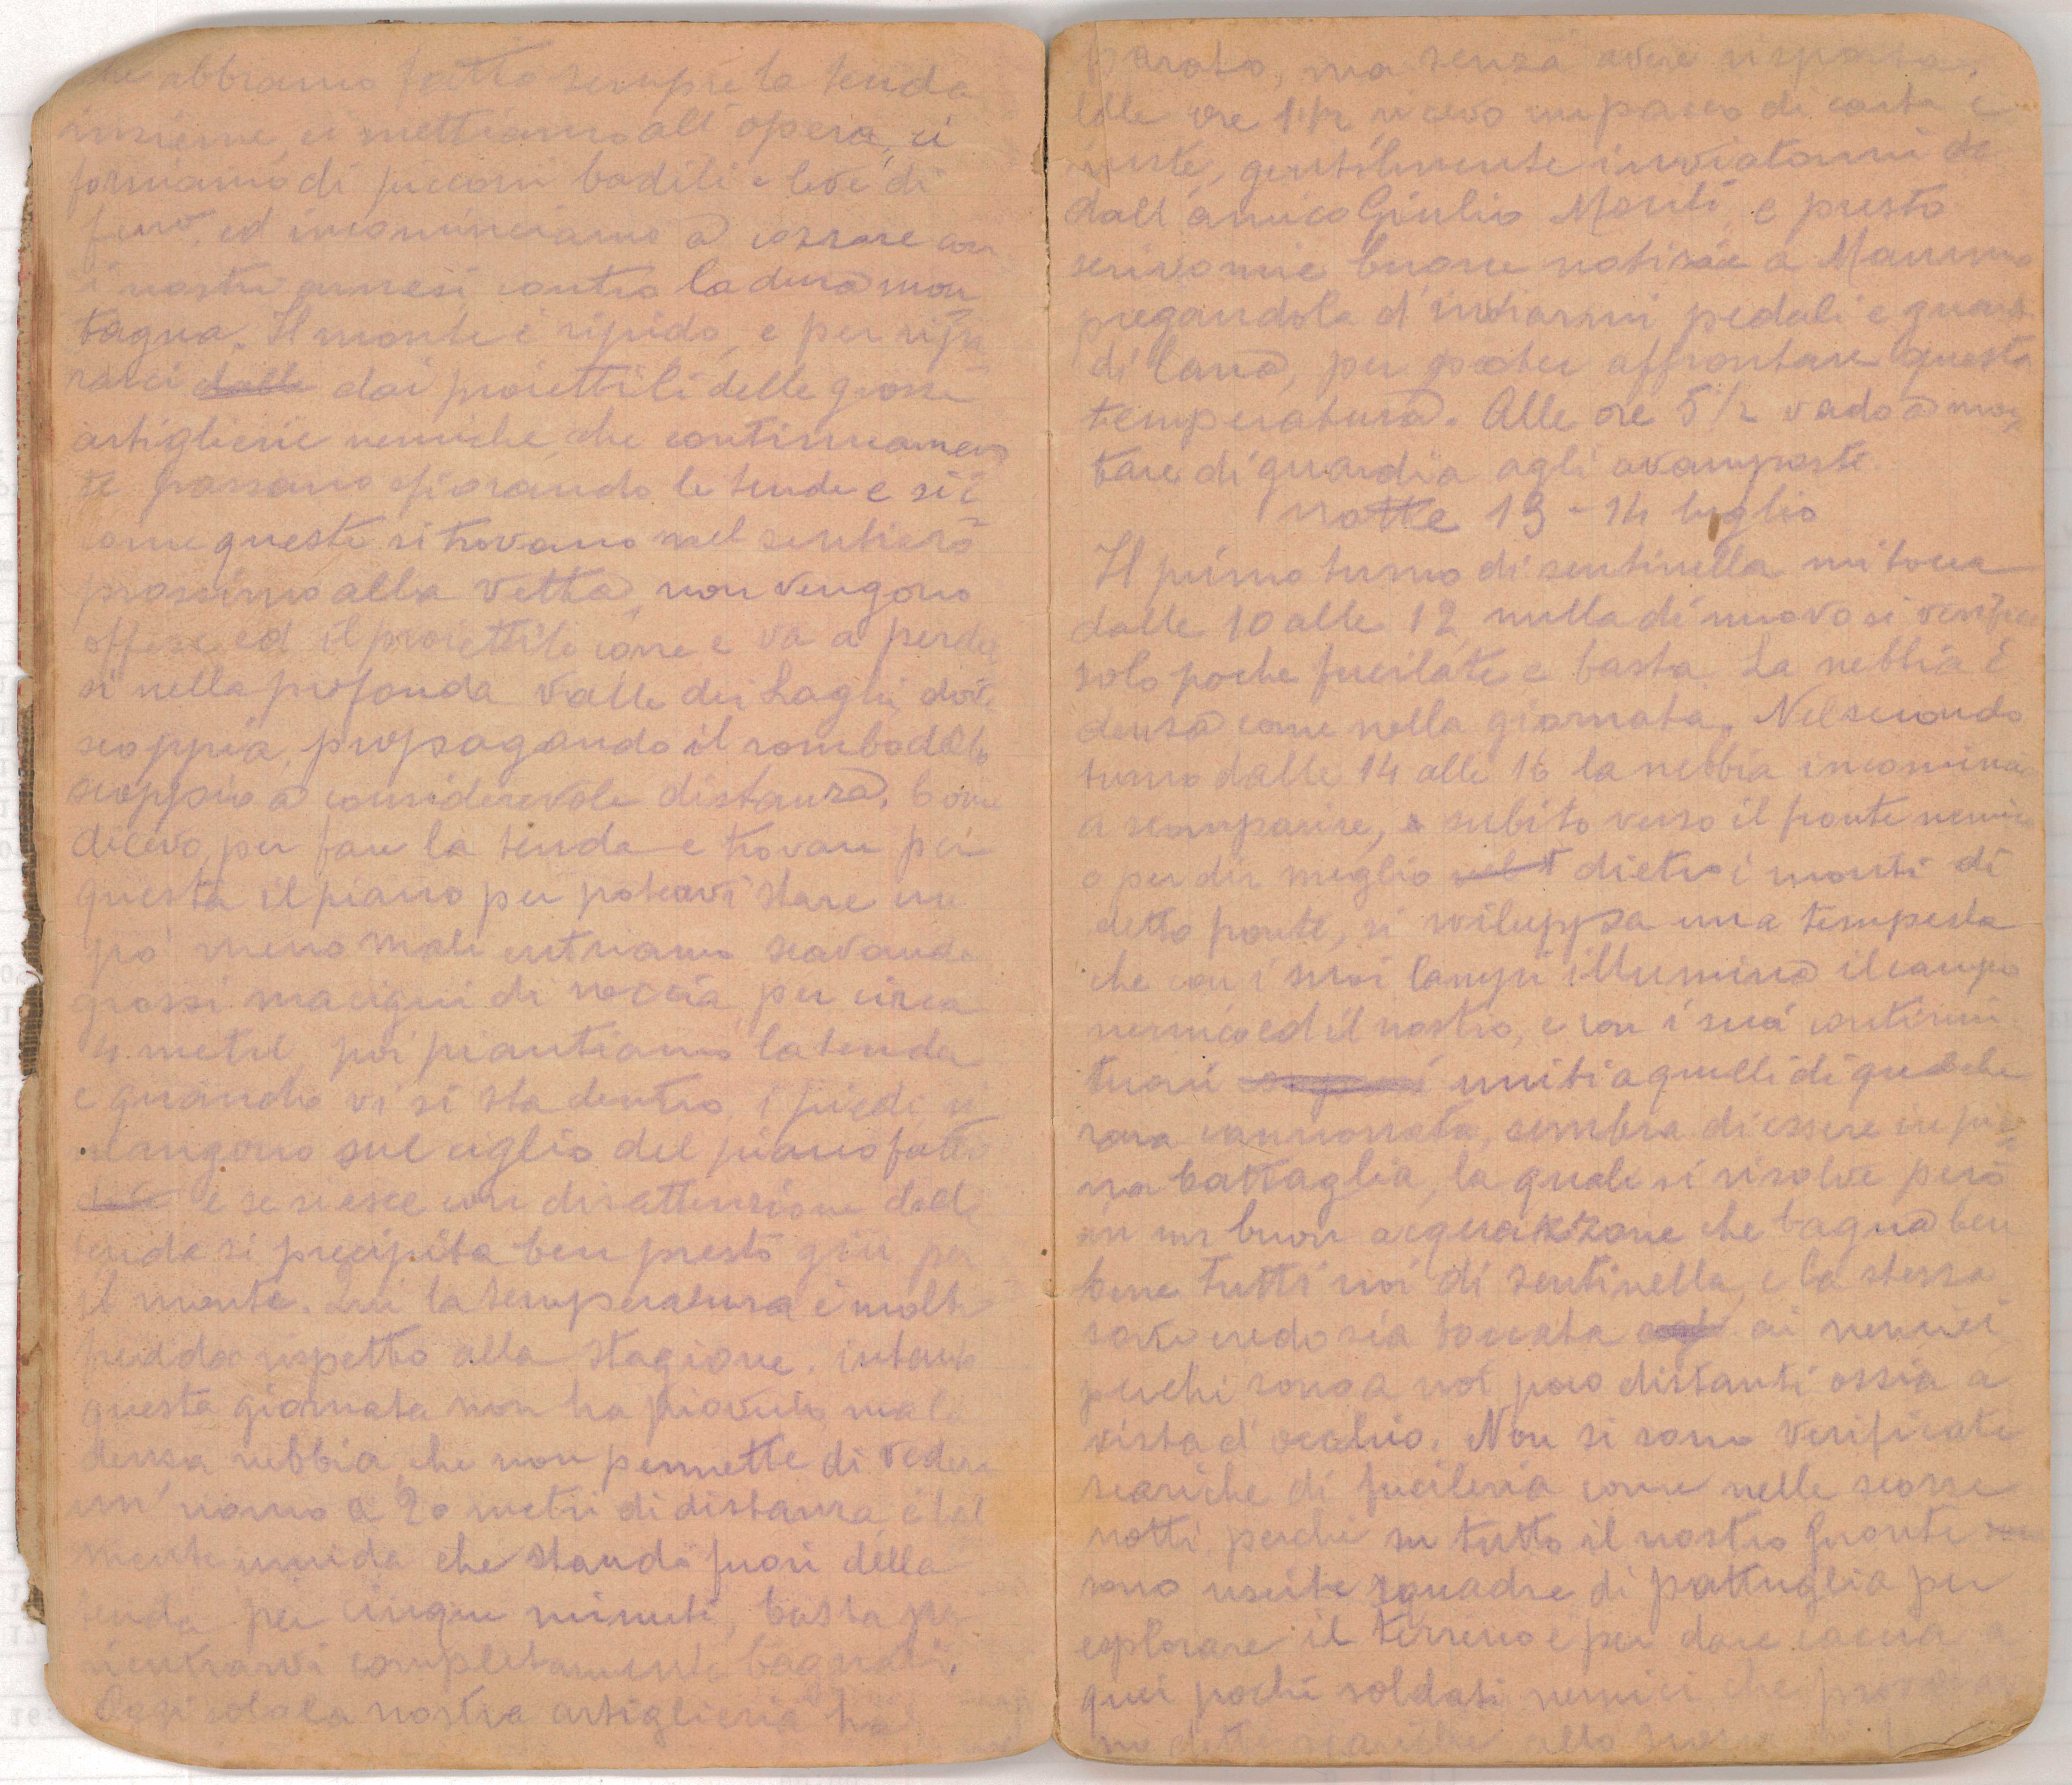 abbiamo fatto sempre la tenda
insieme, ci mettiamo all'opera, ci
forniamo di picconi badili e leve di
ferro, ed incominciamo a cozzare con
i nostri arnesi contro la dura mon
tagna. Il monte è ripido, e per ripa
rarci dalle dai proiettili delle grosse
artiglierie nemiche, che continuamen
te passano sfiorando le tende e sic
come queste si trovano nel sentiero
prossimo alla vetta, non vengono
offese ed il proiettile corre e va a perder
si nella profonda valle dei Laghi, dove
scoppia, propagando il rombo dello
scoppio a considerevole distanza. Come
dicevo, per fare la tenda e trovare per
questa il piano per poterci stare un
po' meno male entriamo scavando
grossi macigni di roccia per circa
4 metri, poi piantiamo la tenda
e quando vi si sta dentro, i piedi ri
mangono sul ciglio del piano fatto
e se si esce con disattenzione dalla
tenda si precipita ben presto giù per
il monte. Qui la temperatura è molto
fredda rispetto alla stagione. intanto
questa giornata non ha piovuto, ma la
densa nebbia, che non permette di vedere
un'uomo a 20 metri di distanza, è tal
mente umida che stando fuori della
tenda per cinque minuti, basta per
rientrarvi completamente bagnati.
Oggi solo la nostra artiglieria ha
sparato, ma senza avere risposta.
Alle ore 1 1/2 ricevo un pacco di carta e
buste, gentilmente inviatomi da
dall'amico Giulio Monti, e presto
scrivo mie buone notizie a Mamma
pregandola d'inviarmi pedali e guanti
di lana, per poter affrontare questa
temperatura. Alle ore 5 1/2 vado a mon
tare di guardia agli avamposti.
Notte 13 - 14 luglio
Il primo turno di sentinella mi tocca
dalle 10 alle 12, nulla di nuovo si verifica
solo poche fucilate e basta. La nebbia è
densa come nella giornata. Nel secondo
turno dalle 14 alle 16 la nebbia incomincia
a scomparire, e subito verso il fronte nemico
o per dir meglio dietro i monti di
detto fronte, si sviluppa una tempesta
che con i suoi lampi illumina il campo
nemico ed il nostro, e con i suoi continui
tuoni uniti a quelli di qualche
rara cannonata, sembra di essere in pie
na battaglia, la quale si risolve però
in un buon acquazzone che bagna ben
bene tutti noi di sentinella, e la stessa
sorte credo sia toccata agl ai nemici
perchè sono a noi poco distanti ossia a
vista d'occhio. Non si sono verificate
scariche di fucileria come nelle scorse
notti perchè su tutto il nostro fronte
sono uscite squadre di pattuglia per
esplorare il terreno e per dare caccia a
quei pochi soldati nemici che provocava
no dette scariche allo scopo